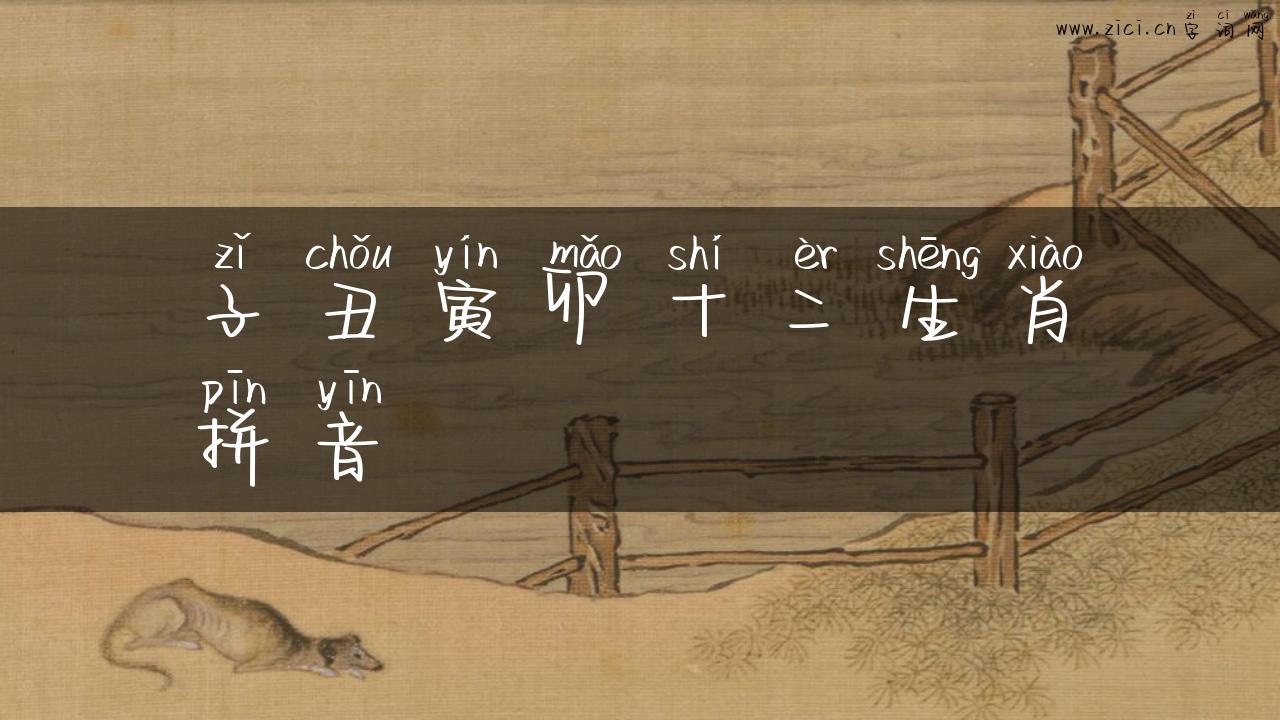 zì cí wǎng
www.zici.cn 字词网
zǐ chǒu yín mǎo shí èr shēng xiào
子丑寅卯十二生肖
pīn yīn
拼音